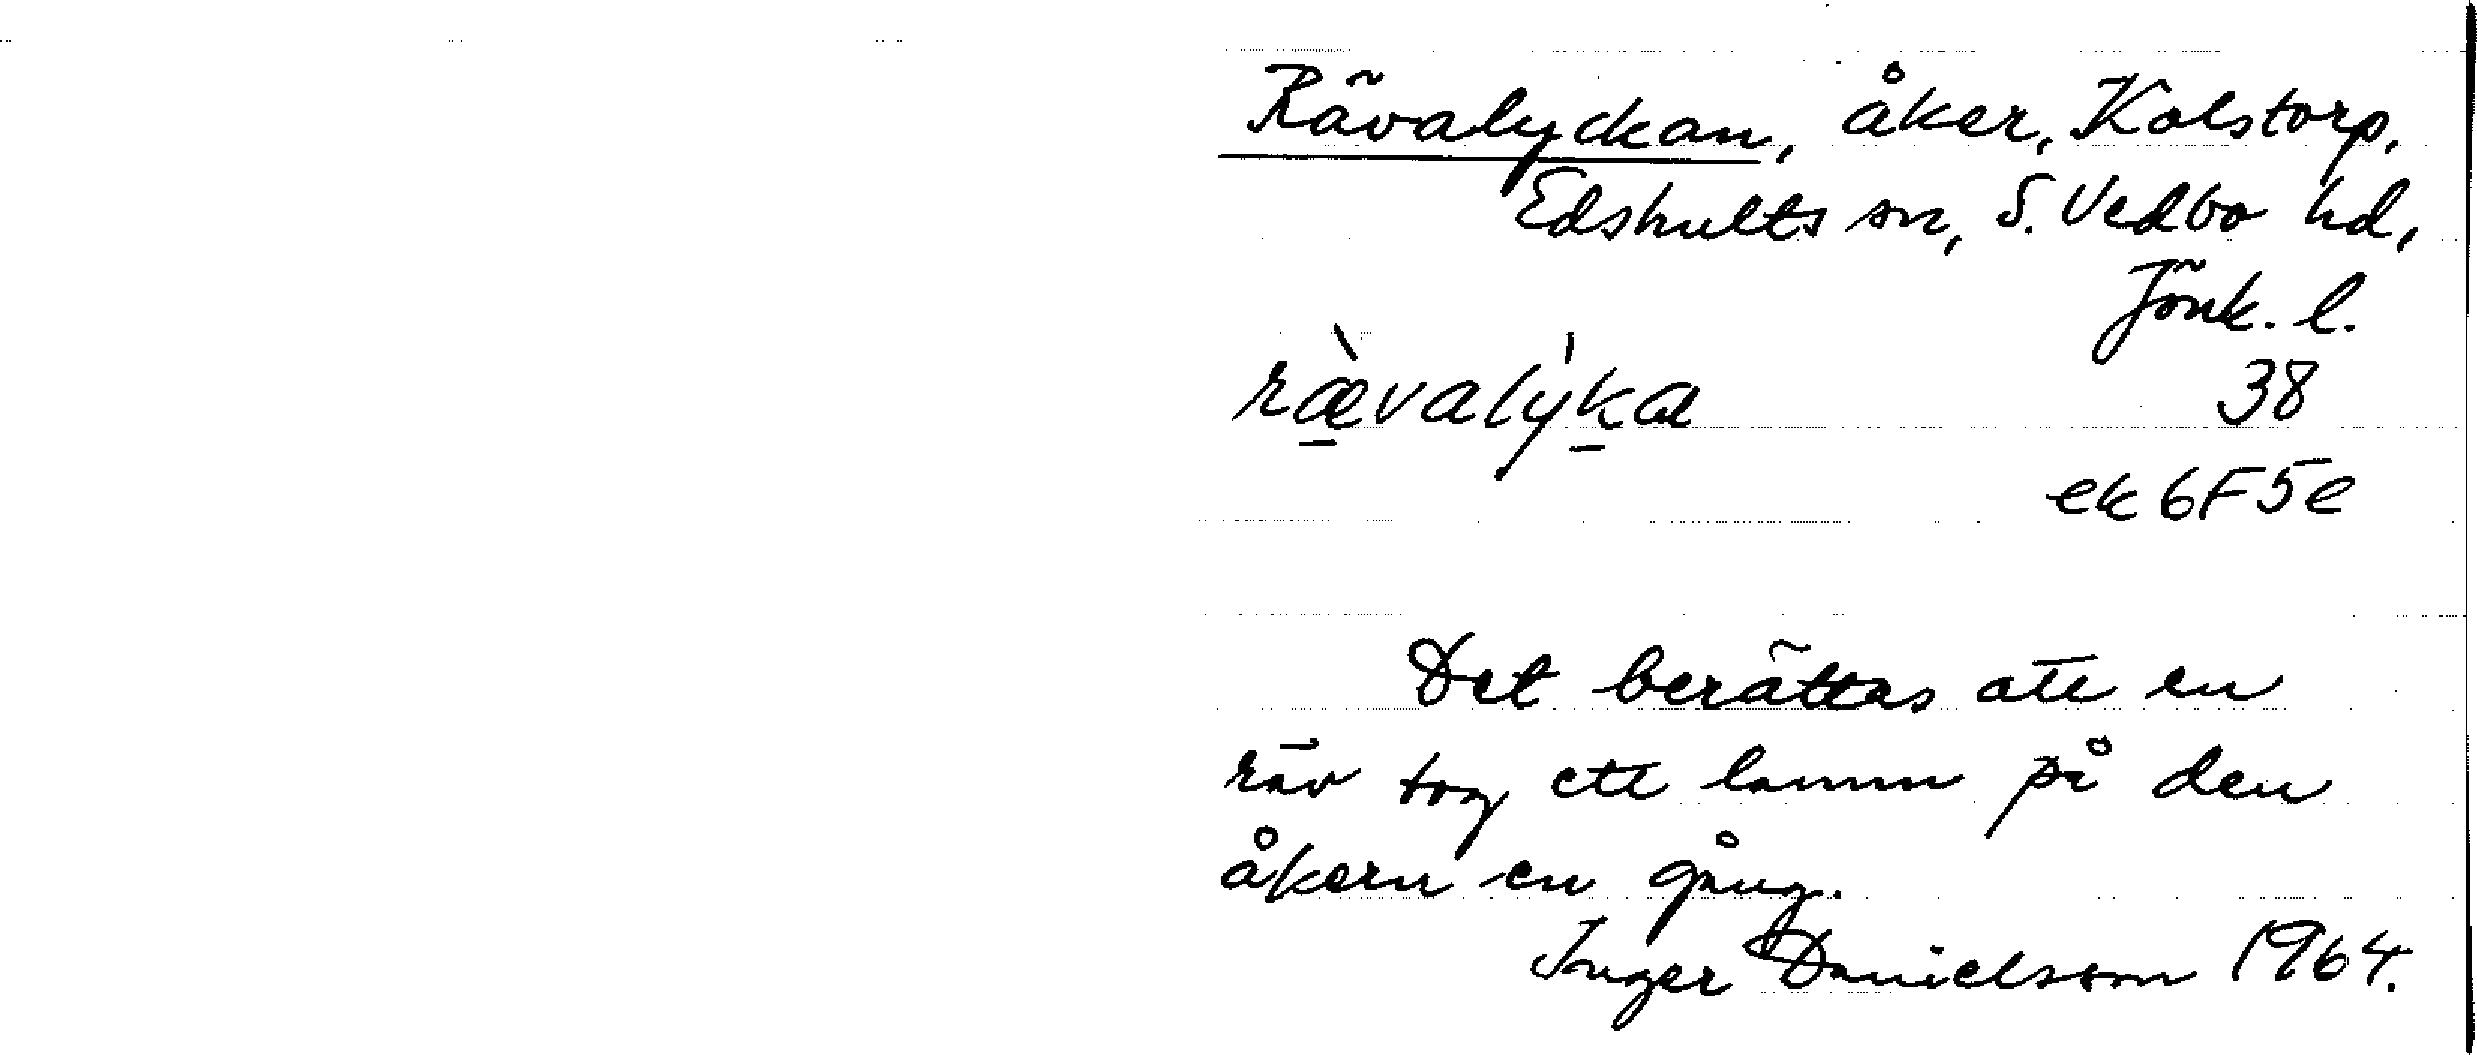 Rävalyckan, åker, Kolstorp,
Edshults sn, S. Vedbo hd,
Jönk. l.
ræ̠̀valy̍k̠a 38
ek 6F5e
Det berättas att en
räv tog ett lamm på den
åkern en gång.
Inger Danielsson 1964.